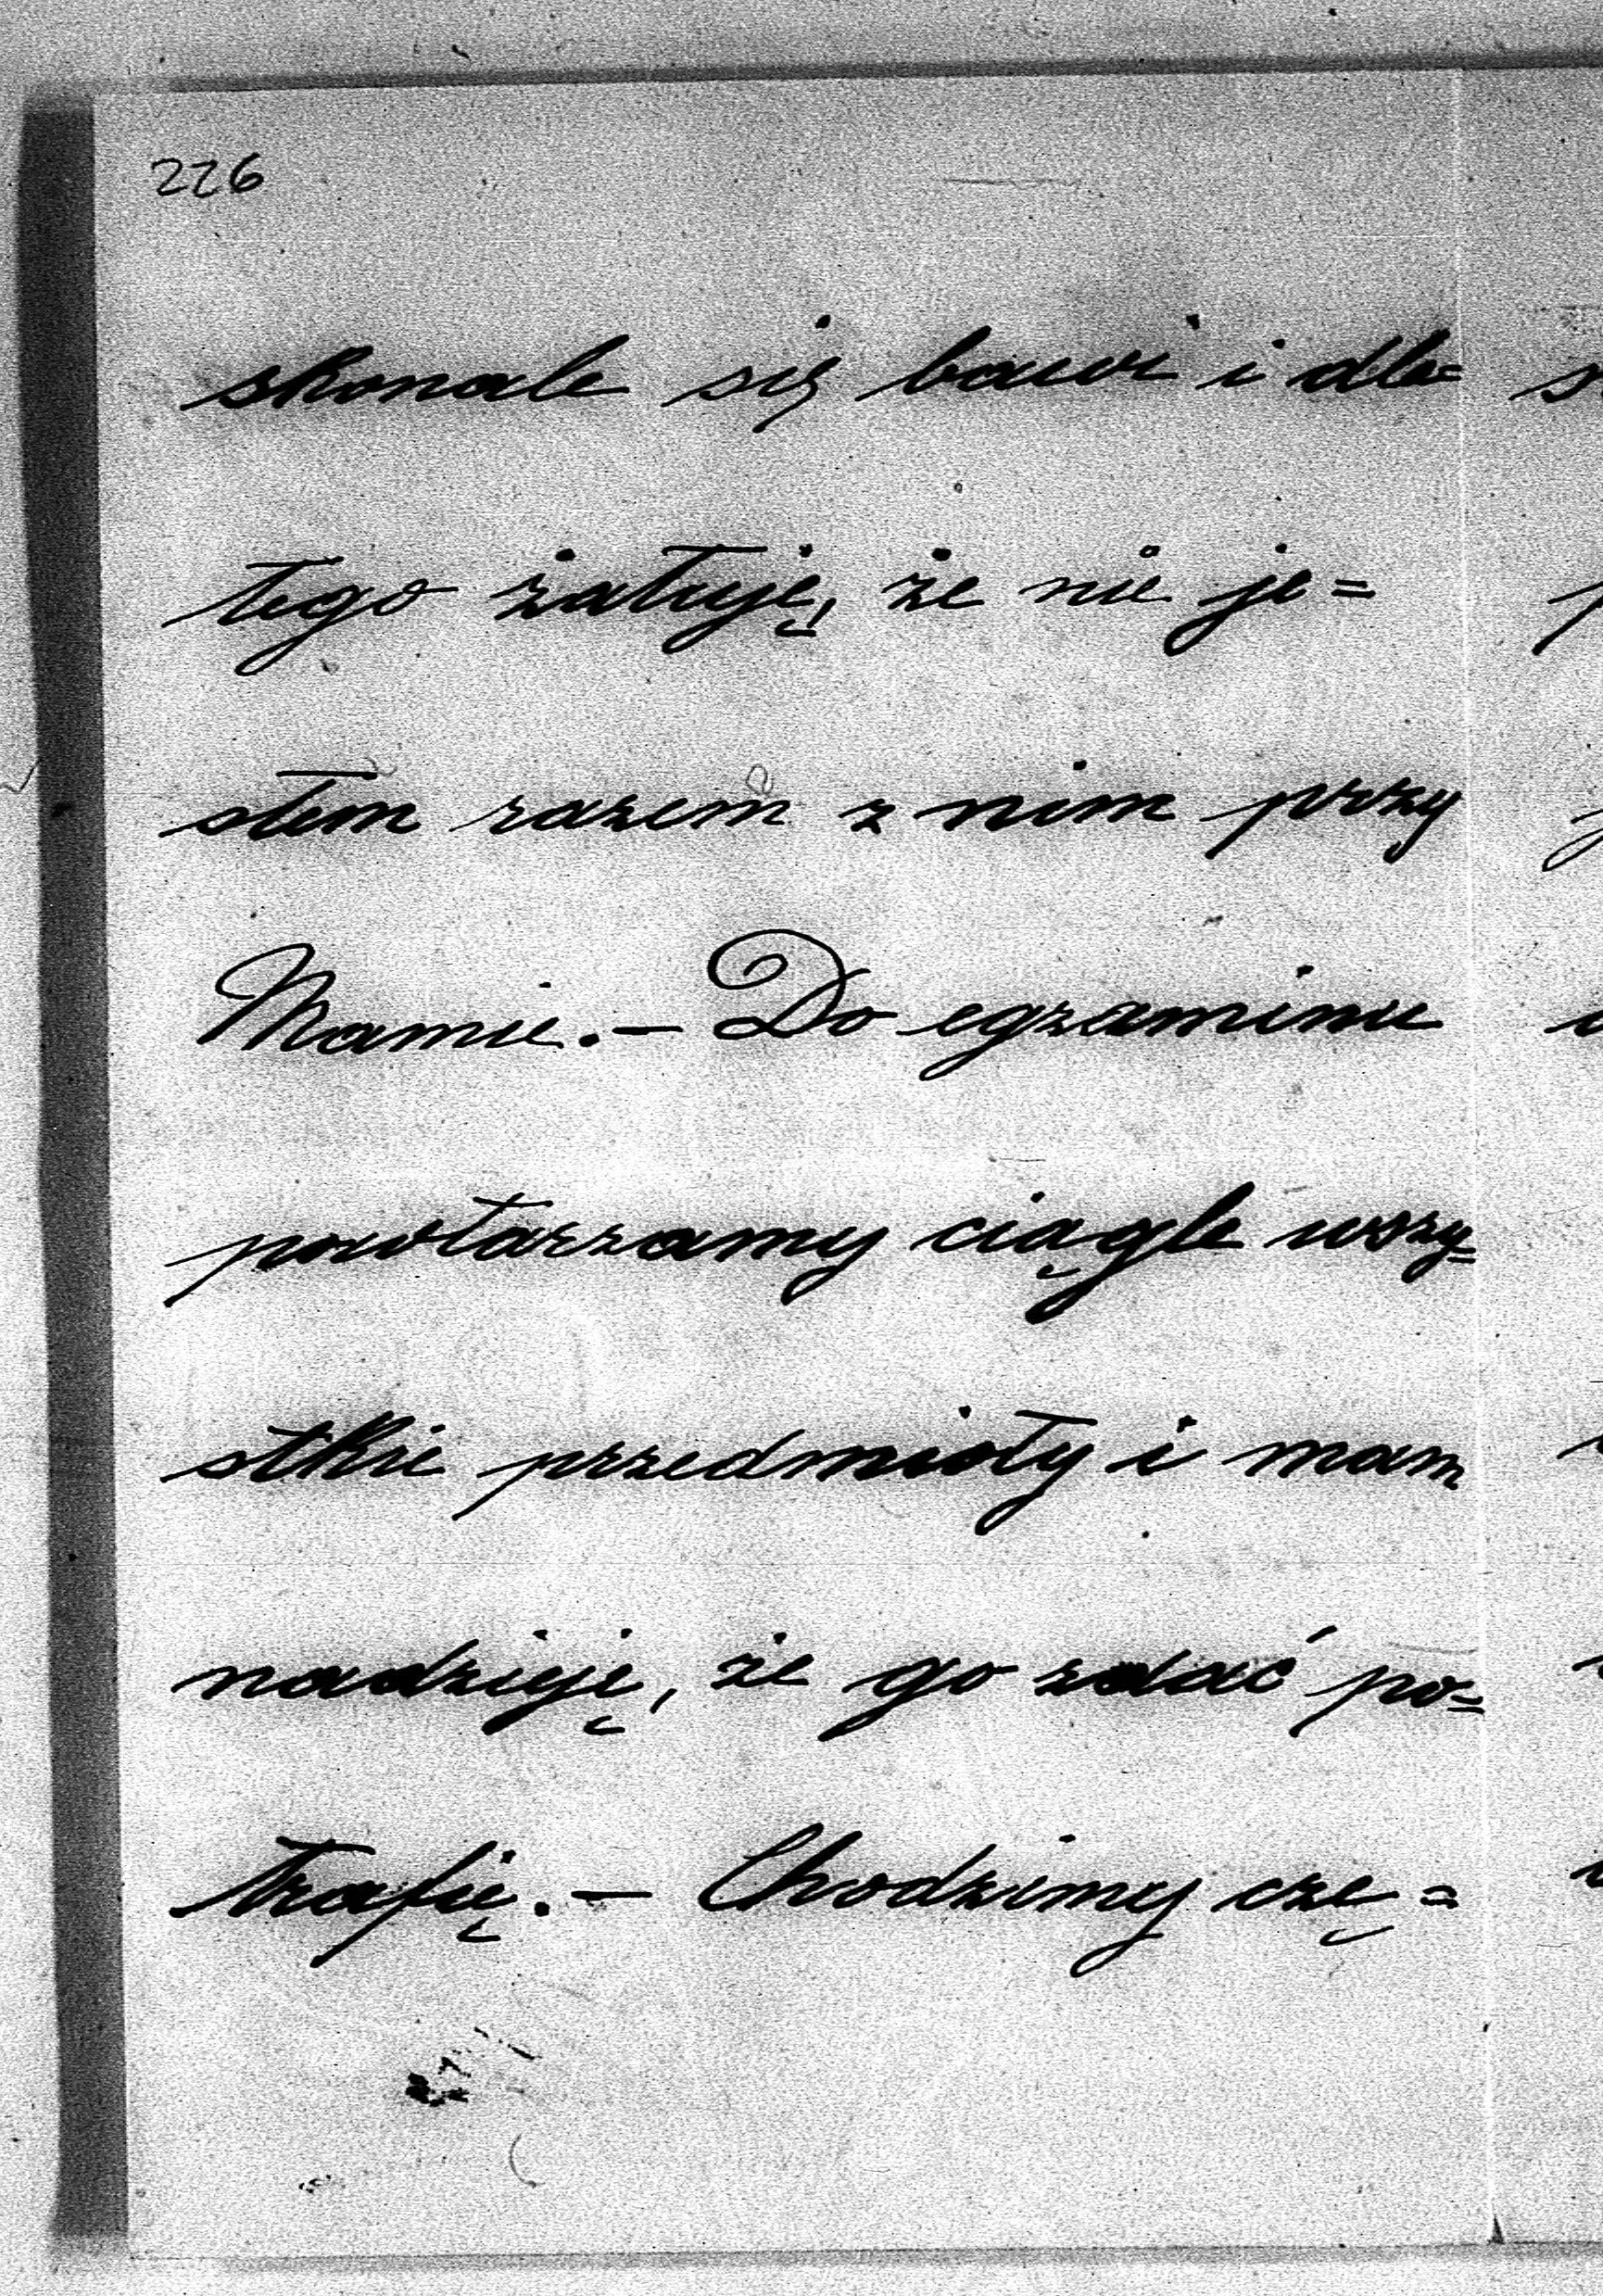 226
skonale się bawi i dla=
tego żałuję, że nie je=
stem razem z nim przy
Mamie. — Do egzaminu
powtarzamy ciągle wszy=
stkie przedmioty i mam
nadzieję, że go zdać po=
trafię. — Chodzimy czę=